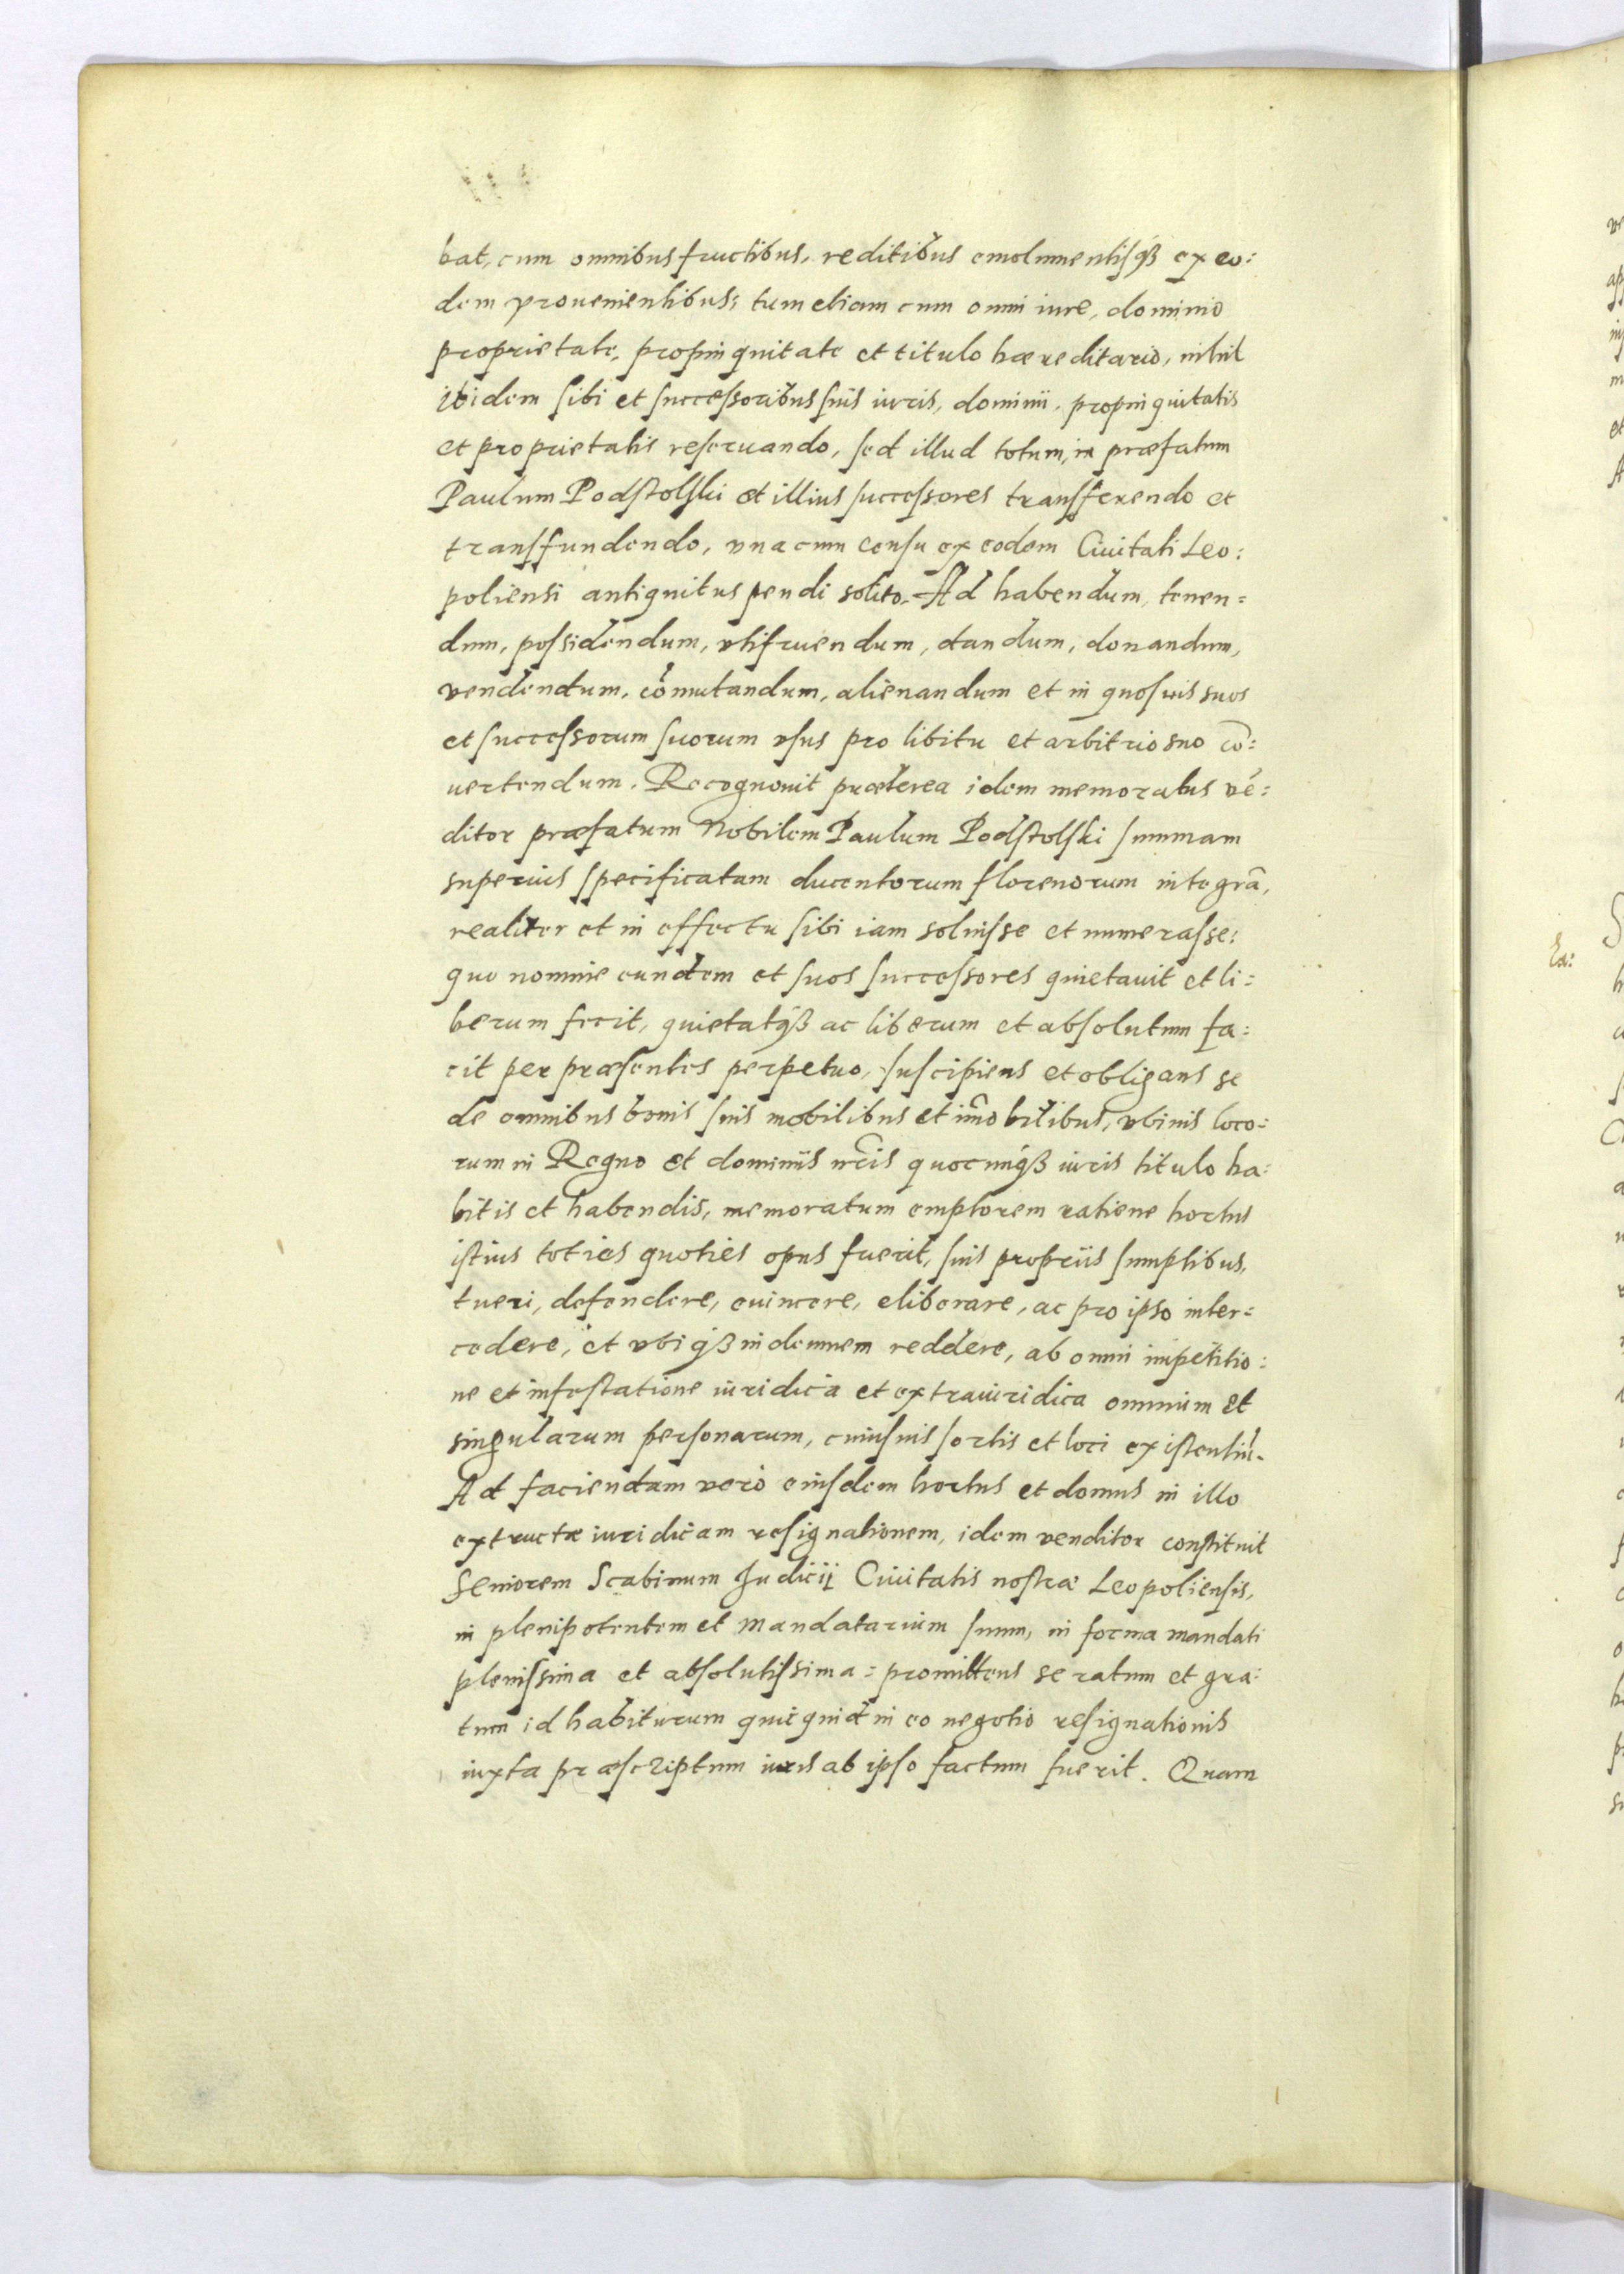 bat, cum omnibus fructibus, reditibus emolumentisqꝫ ex eo:
dem prouenientibus; tum etiam cum omni iure, dominio
proprietate, propinquitate et titulo hæreditario, nihil
ibidem sibi et successoribus suis iuris, dominii, propinquitatis
et proprietatis reseruando, sed illud totum, in præfatum
Paulum Podstolski et illius successores transferendo et
transfundendo, vna cum censu ex eodem Ciuitati Leo:
poliensi antiquitus pendi solito. Ad habendum, tenen=
dum, possidendum, vtifruendum, dandum, donandum,
vendendum, cõmutandum, alienandum et in quosuis suos
et successorum suorum vsus pro libitu et arbitrio suo cõ:
uertendum. Recognouit præterea idem memoratus vẽ:
ditor præfatum Nobilem Paulum Podstolski summam
superius specificatam ducentorum florenorum integrã,
realiter et in effectu sibi iam soluisse et numerasse:
quo nomine eundem et suos successores quietauit et li=
berum fecit, quietatqꝫ ac liberum et absolutum fa:
cit per præsentes perpetuo, suscipiens et obligans se
de omnibus bonis suis mobilibus et im̃obilibus, vbiuis loco:
rum in Regno et dominiis nr̃is quocunqꝫ iuris titulo ha:
bitis et habendis, memoratum emptorem ratione hortus
istius toties quoties opus fuerit, suis propriis sumptibus,
tueri, defendere, euincere, eliberare, ac pro ipso inter=
cedere, et vbiqꝫ indemnem reddere, ab omni impetitio:
ne et infestatione iuridica et extraiuridica omnium et
singularum personarum, cuiusuis sortis et loci existentiũ.
Ad faciendam verò eiusdem hortus et domus in illo
extructæ iuridicam resignationem, idem venditor constituit
Seniorem Scabinum Judicij Ciuitatis nostræ Leopoliensis,
in plenipotentem et mandatarium suum, in forma mandati
plenissima et absolutissima: promittens se ratum et gra:
tum id habiturum quicquid in eo negotio resignationis
iuxta præscriptum iuris ab ipso factum fuerit. Quam
Ea: